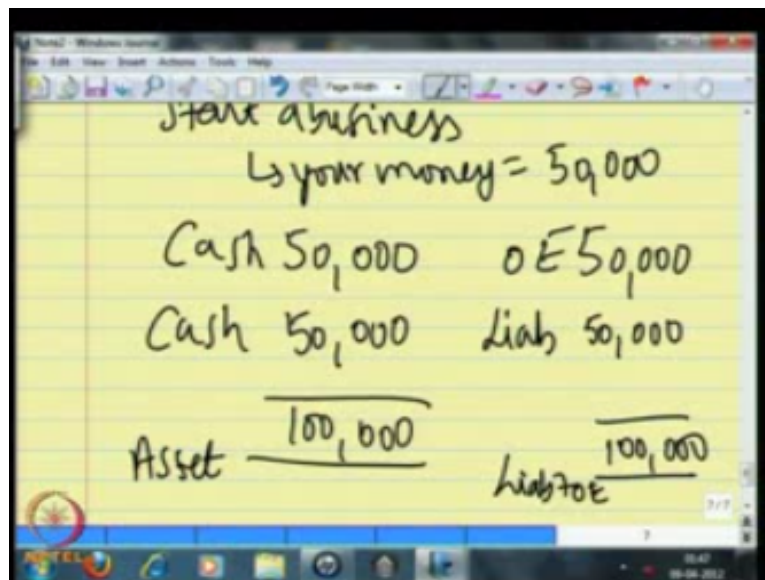 Note2 - Windows Journal
File Edit View Insert Actions Tools Help
Page Width
Start a business
↳ your money = 50,000
Cash 50,000 OE 50,000
Cash 50,000 Liab 50,000
Asset 100,000 Liab+OE 100,000
7/7
7
NPTEL
01:47
09-04-2012